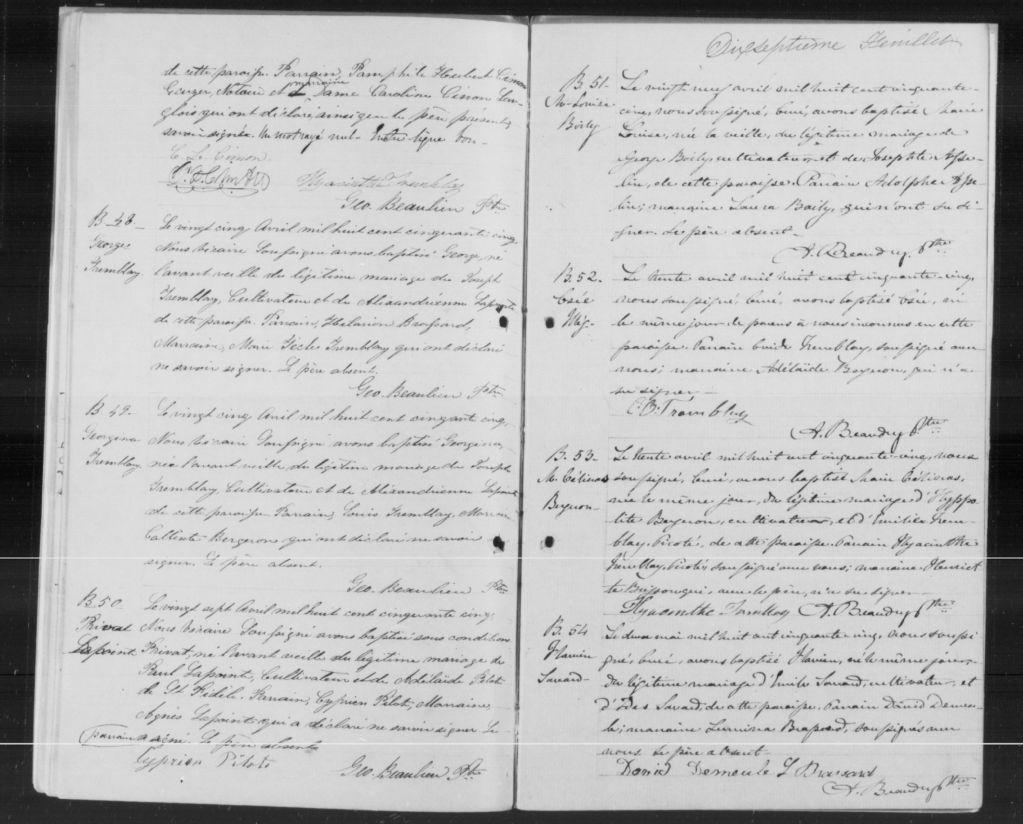 de cette paroisse Parrain, Pamphile Hubert Cimon
Ecuyer, Notaire et marraine Dame Caroline Cimon Lan-
glois qui ont déclaré, ainsi que le père présent,
savoir signer. Un mot rayé nul. Entre ligne bon.
C. L. Cimon
Hyacinthe Tremblay
Geo. Beaulieu Ptre
B_48_
George
Tremblay
Le vingt cinq Avril mil huit cent cinquante cinq
Nous vicaire Soussigné avons baptisé George, né
l'avant veille du légitime mariage de Joseph
Tremblay, Cultivateur et de Alexandrienne Lapointe
de cette paroisse. Parrain, Hilarion Brassard,
Marraine, Marie Tècle Tremblay qui ont déclaré
ne savoir signer. Le père absent.
Geo. Beaulieu Ptre
B_49_
Georgina
Tremblay
Le vingt cinq Avril mil huit cent cinquante cinq,
Nous vicaire Soussigné avons baptisé Georgina,
née l'avant veille du légitime mariage de Joseph
Tremblay, Cultivateur et de Alexandrienne Lapointe
de cette paroisse. Parrain, Louis Tremblay, Marraine
Calixte Bergeron qui ont déclaré ne savoir
signer. Le père absent.
Geo. Beaulieu Ptre
B_50_
Privat
Lapointe
Le vingt sept Avril mil huit cent cinquante cinq
Nous vicaire Soussigné avons baptisé sous condition
Privat, né l'avant veille du légitime mariage de
Paul Lapointe, Cultivateur et de Adélaïde Pilote
de St Fidèle. Parrain, Cyprien Pilote, Marraine,
Agnès Lapointe qui a déclaré ne savoir signer. Le
parrain a signé. Le père absent.
Cyprien Pilote
Geo. Beaulieu Ptre
Dixseptième Feuillet
B_51_
M. Louise
Boily
Le vingt neuf avril mil huit cent cinquante-
cinq, nous soussigné, curé, avons baptisé Marie
Louise, née la veille, du légitime mariage de
George Boily, cultivateur, et de Josephte Asse-
lin, de cette paroisse. Parrain Adolphe Asse-
lin; marraine Laura Boily, qui n'ont su si-
gner. Le père absent.
A. Beaudry Ptre
B_52_
Osée
Le trente avril mil huit cent cinquante-cinq,
nous soussigné, curé, avons baptisé Osée, né
le même jour de parents à nous inconnus en cette
paroisse. Parrain Tremblay, soussigné avec
nous; marraine Adélaïde Bergeron, qui n'a
su signer.
Tremblay
A. Beaudry Ptre
B_53_
M. Célina
Le trente avril mil huit cent cinquante-cinq, nous
soussigné, curé, avons baptisé Marie
née le même jour, du légitime mariage d'Hyppo-
lite cultivateur, et d'Emilie Trem-
blay Picoté, de cette paroisse. Parrain Hyacinthe
Tremblay Picoté, soussigné avec nous; marraine Henriet-
te qui, avec le père, n'a su signer.
Hyacinthe Tremblay A. Beaudry Ptre
B_54
Flavien
Savard_
Le deux mai mil huit cent cinquante-cinq, nous soussi-
gné, curé, avons baptisé Flavien, né le même jour,
du légitime mariage d'Emile Savard, cultivateur, et
Savard, de cette paroisse. Parrain David Demeu-
le; marraine Brassard, soussignés avec
nous. Le père absent.
David Demeule L Brassard
A. Beaudry Ptre